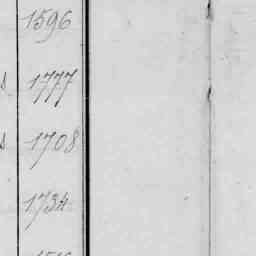 1596
1777
1708
1734